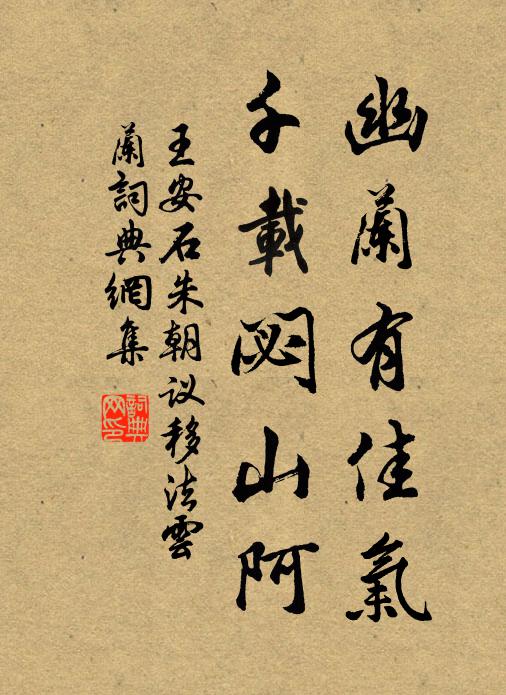 幽蘭有佳氣
千載閟山阿
王安石朱朝议移法雲
蘭詞典網集
詞典網印